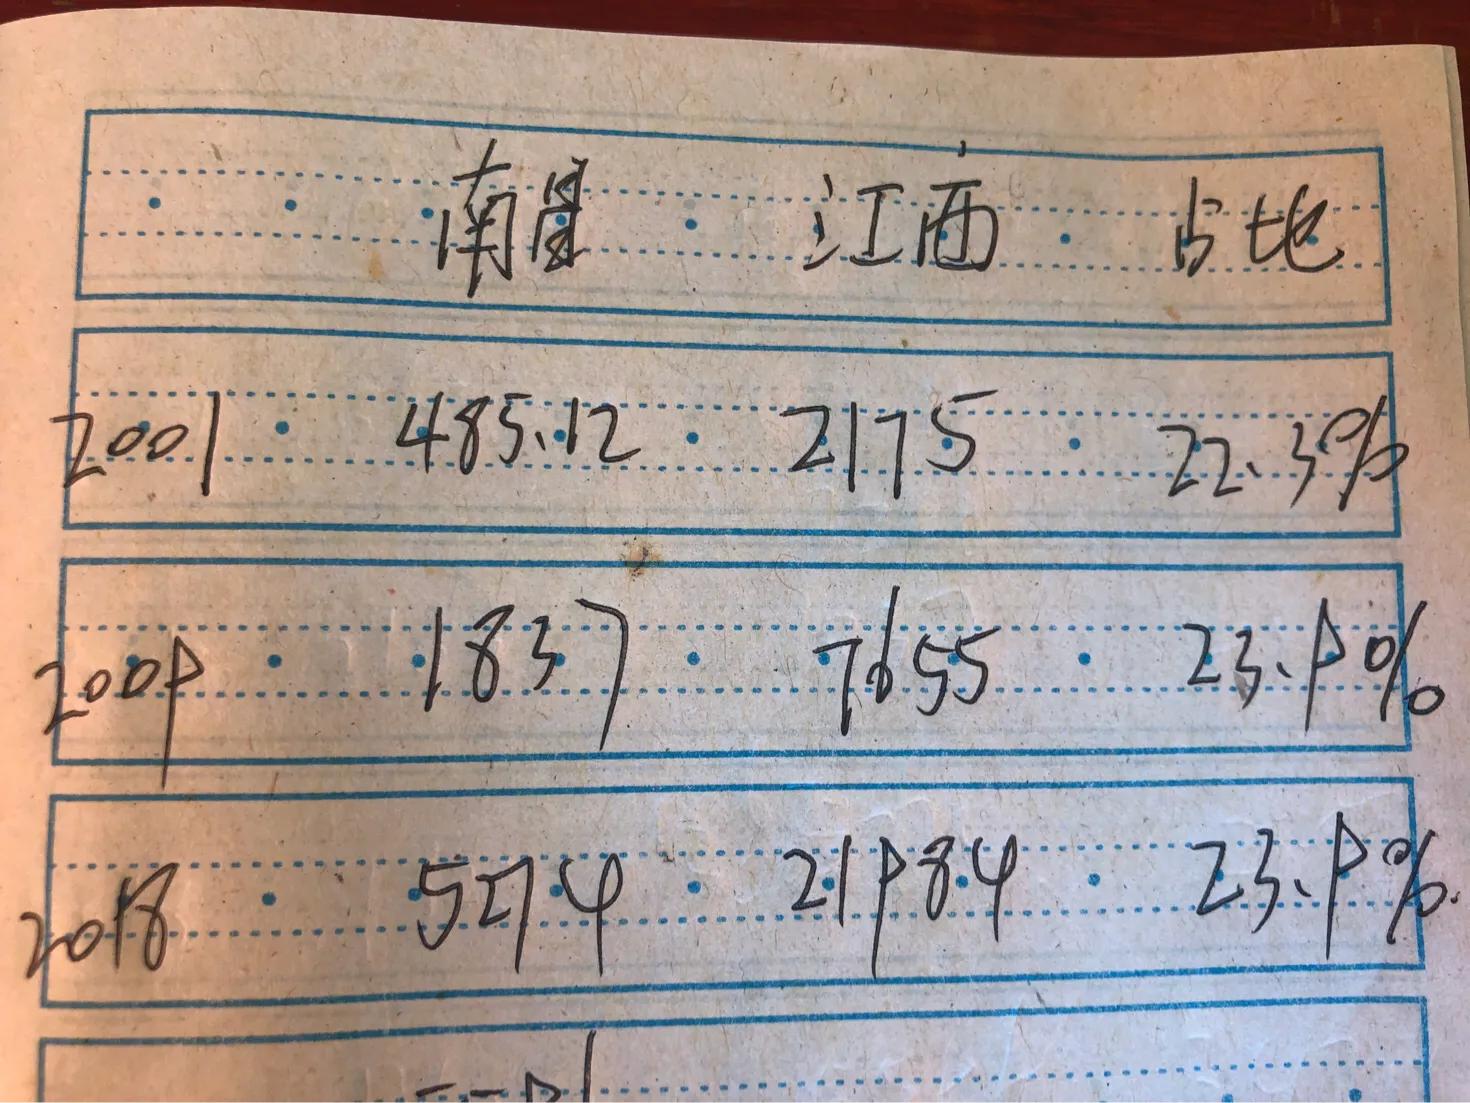 南昌 江西 占比
2001 485.12 2175 22.3%
2009 1837 7655 23.9%
2018 5274 21984 23.9%